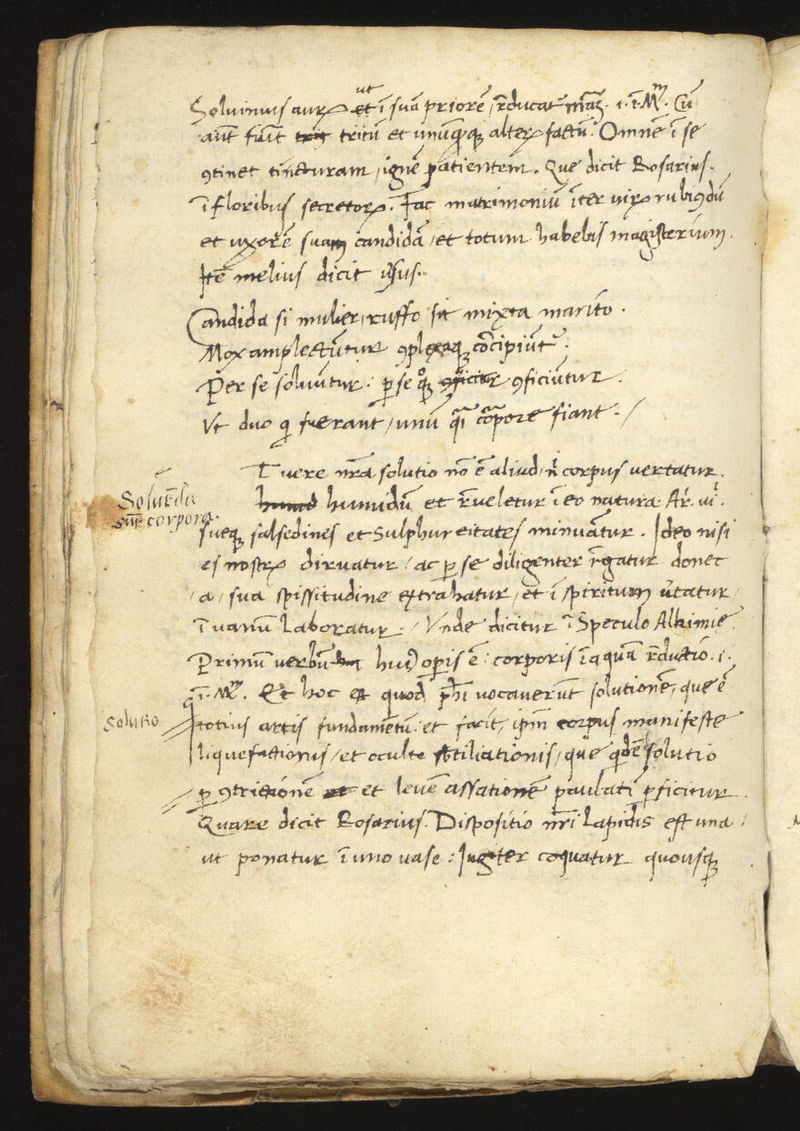 Soluimus aurū ut et ī suā priorē r̄ducat mām .i. ī. Mm. Cū
aūt fūīt trit tritū et unūquēq; alterꝝ factū. Omnē ī se
ꝯtinet tincturam, ignē patientem. Que dicit Rosarius.
ī floribus secretorꝝ. Fac matrimoniū īter uirꝝ rubicūdū
et uxorē suam candidā, et totum habebis magisterium.
Itē melius dicit
Candida si mulier, ruffo sit mixta marito.
Mox amplectūtur ꝯplexaq; cōcipiūt.
Per se soluūtur: ꝑ se qͦq; ꝯficiūtur.
Ut duo q fuerant, unū qͣi corpore fiant.
T uere nr̄a solutio nō ē aliud, nͥ corpus uertatur
humidū et r̄ueletur ī eo natura Ar. ui.
Soluēda
corpora.
sueq; salsedines et Sulphureitates minuātur. Ideo nisi
es nostrꝝ diruatur, ac ꝑ se diligenter r̄gatur donec
a, sua spissitudine extrahatur, et ī spiritum ūtatur,
ī uanū Laboratur. Unde dicitur ī Speculo Alkimie
Primū uerbū huiꝰ oꝑis ē: corporis ī aquā r̄ductio .i.
ī. Mm. Et hoc est quod ph̄i vocauerūt solutionē, que ē
Solutio
totius artis fundamētū. et facit, ipm̄ corpus manifeste
liquefactionis, et oculte subtiliationis, que qͥdē solutio
ꝑ ꝯtritionē et leuē assationē paulati ꝑficitur
Quare dicit Rosarius. Dispositio nr̄i Lapidis est una
ut ponatur ī uno uase: Jugiter coquatur quousq;